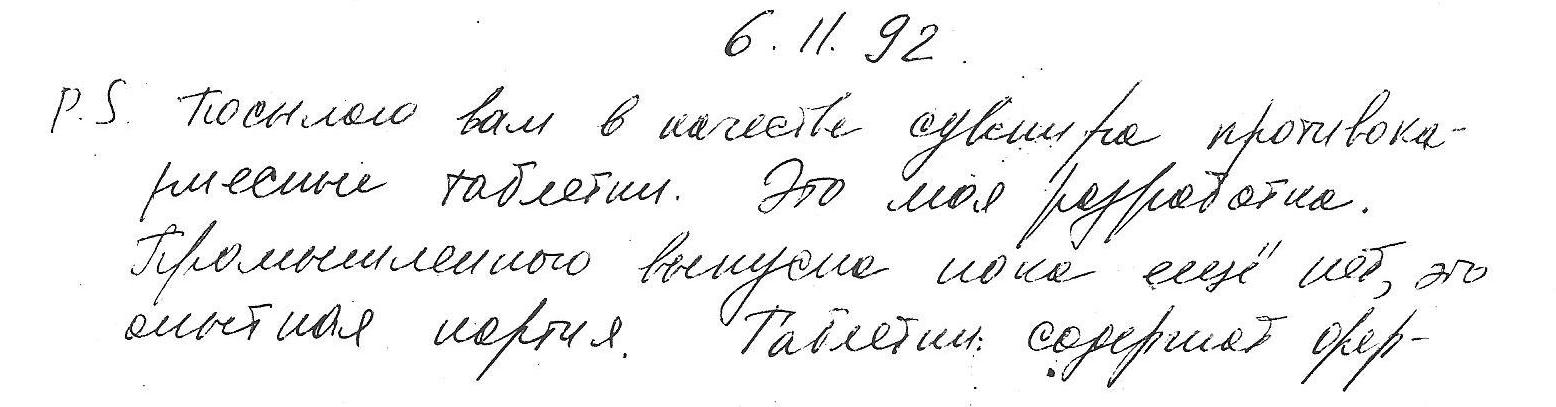 6.11.92.
P.S. Посылаю вам в качестве сувенира противока-
риесные таблетки. Это моя разработка.
Промышленного выпуска пока ещё нет, это
опытная партия. Таблетки содержат фер-